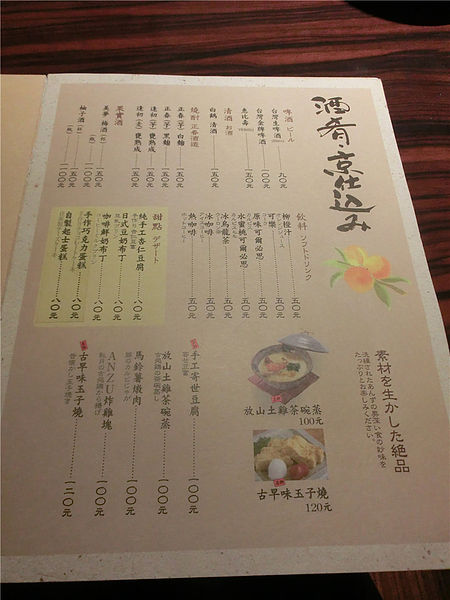 酒肴・京仕込み
啤酒 ビール
台灣生啤酒 九〇元
台灣金牌啤酒 一〇〇元
惠比壽
清酒 お酒
白鶴 清酒 一五〇元
燒酎 正春酒造
果實酒
美夢 梅酒
柚子酒
飲料 ソフトドリンク
柳橙汁 五〇元
可樂 五〇元
原味可爾必思 五〇元
水蜜桃可爾必思 五〇元
冰烏龍茶 五〇元
冰咖啡 五〇元
熱咖啡 五〇元
甜點 デザート
純手工杏仁豆腐 八〇元
日式豆奶布丁 八〇元
咖啡鮮奶布丁 八〇元
手作巧克力蛋糕 八〇元
自製起士蛋糕 八〇元
素材を生かした絶品
洗練されたあんずの奥深い食の妙味を
たっぷりとお楽しみください。
放山土雞茶碗蒸
100元
古早味玉子燒
120元
手工寄世豆腐 一〇〇元
寄せ豆腐
放山土雞茶碗蒸 一〇〇元
馬鈴薯燉肉 一〇〇元
ANZU炸雞塊 一〇〇元
古早味玉子燒 一二〇元
昔懐かし玉子焼き